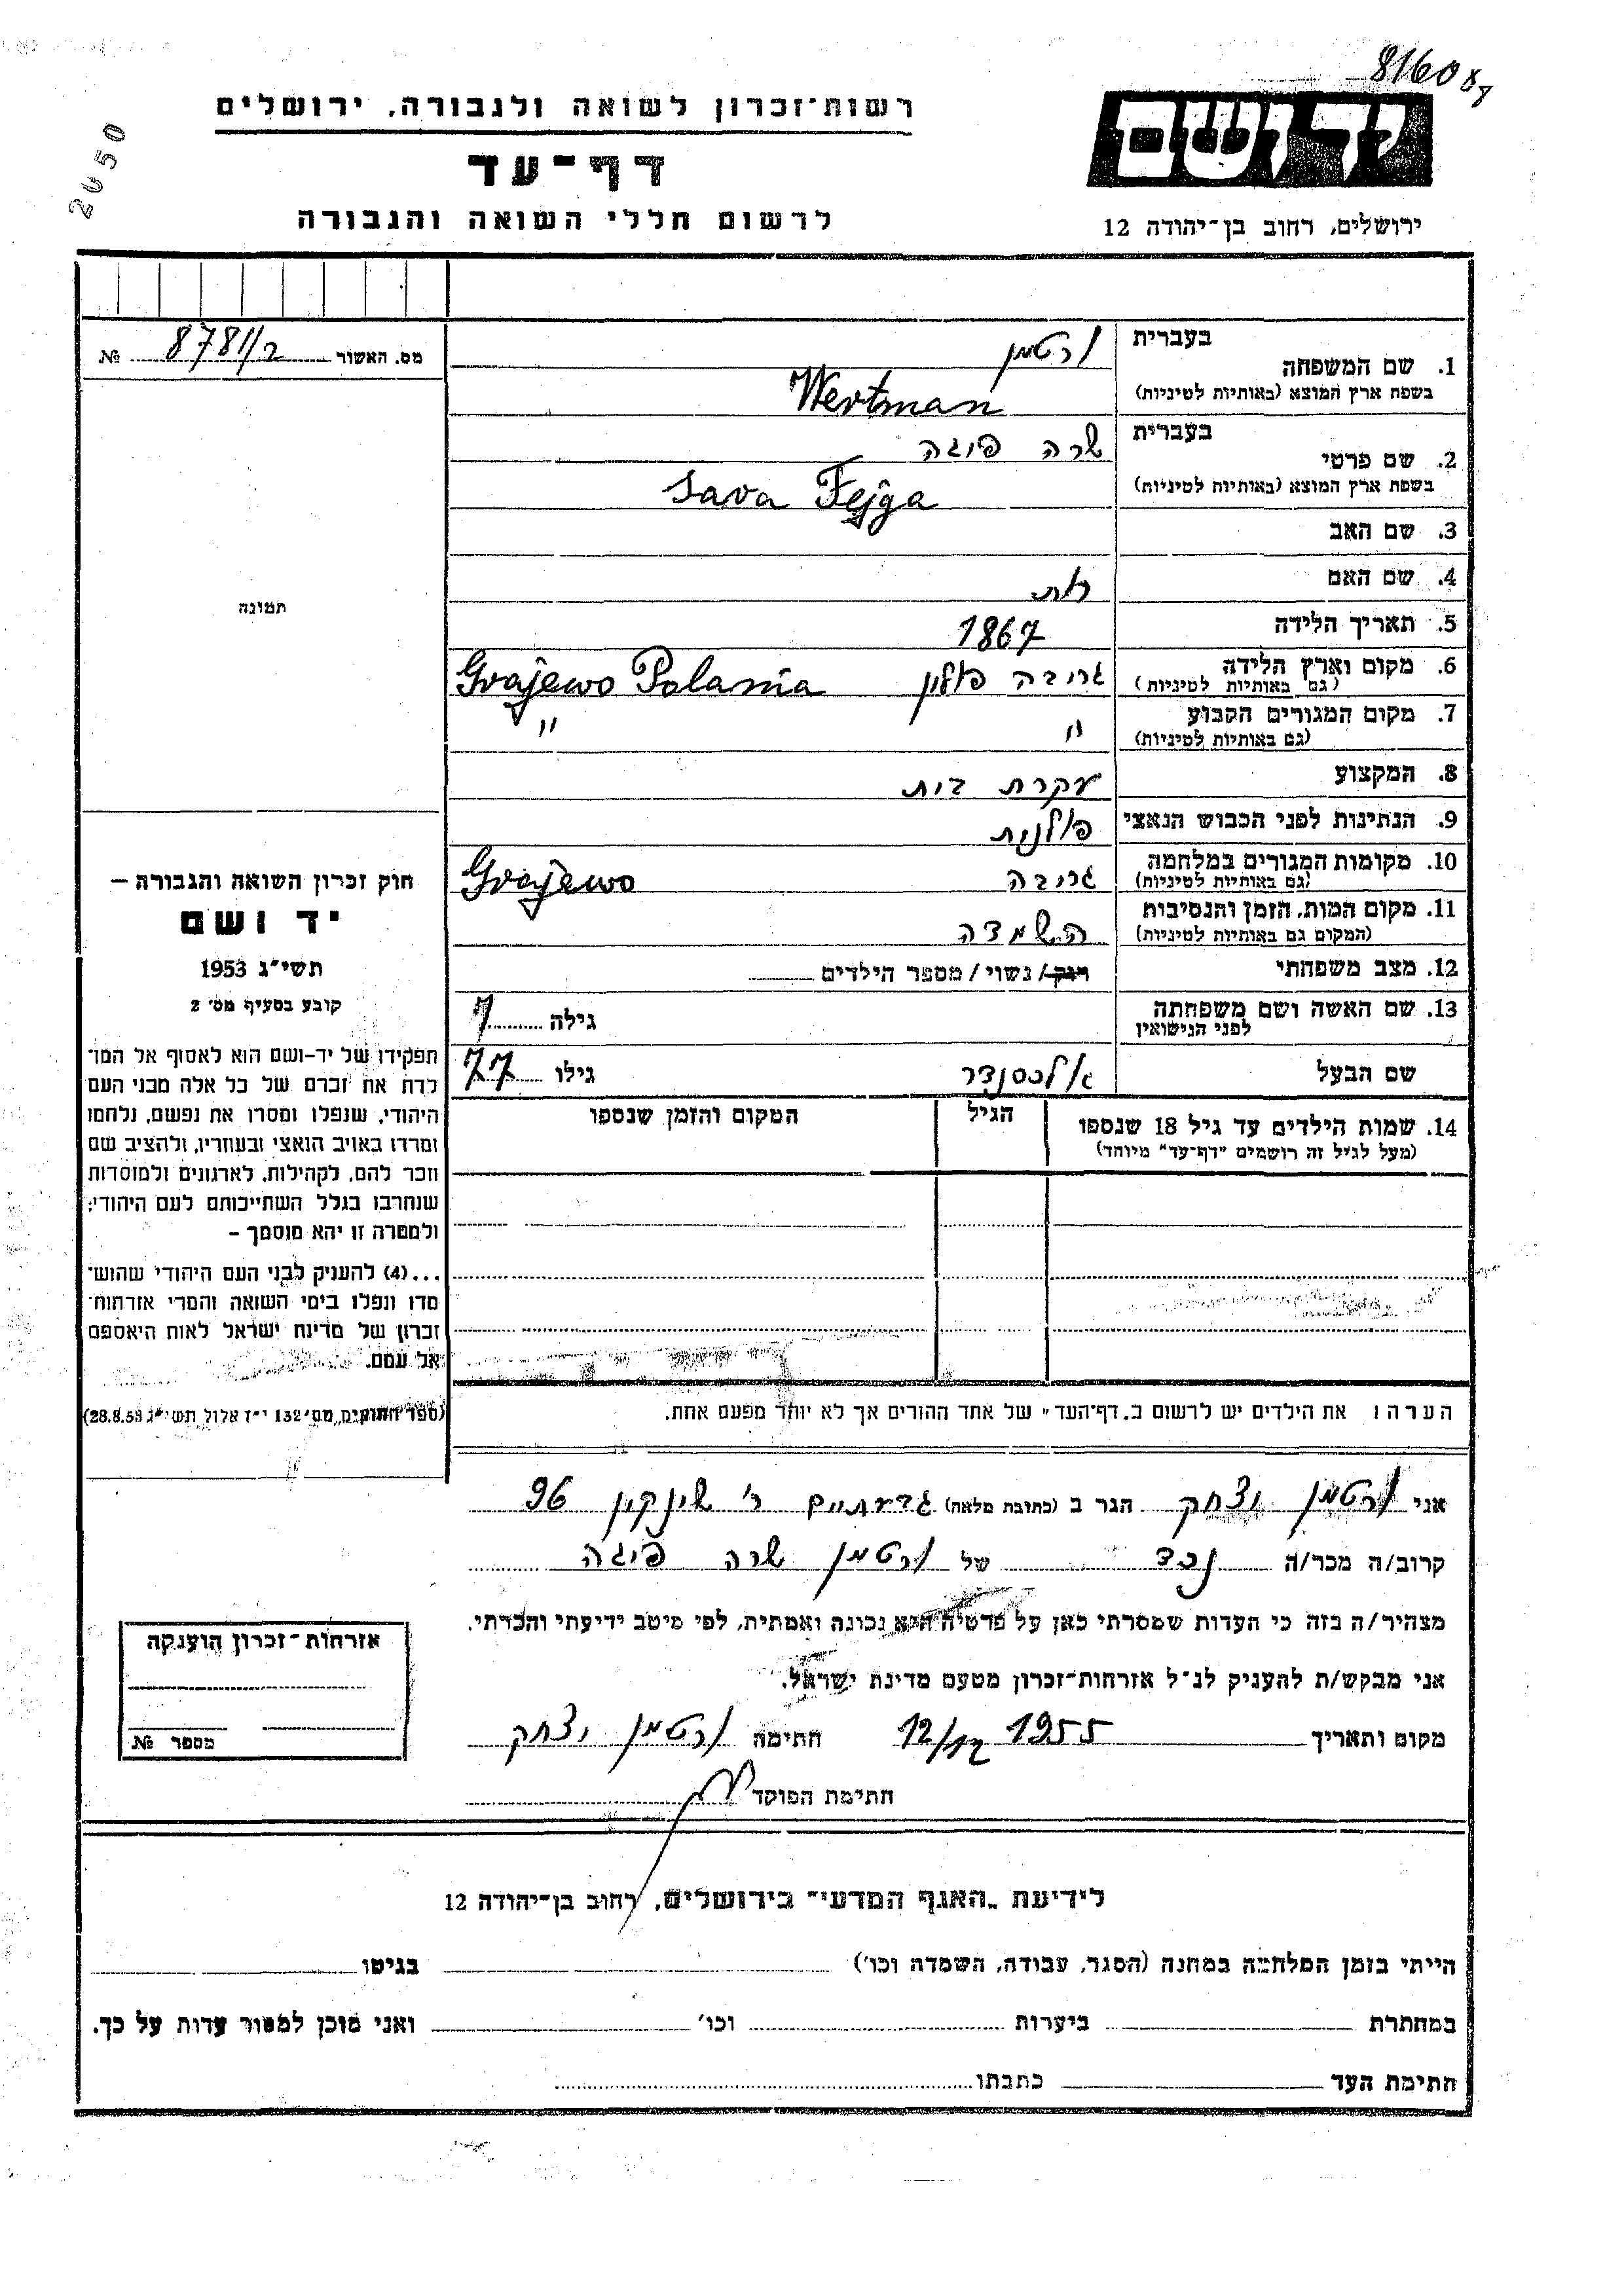 816088
2050
רשות־זכרון לשואה ולגבורה, ירושלים
יד ושם
דף־עד
לרשום חללי השואה והגבורה
ירושלים, רחוב בן־יהודה 12
מס. האשור 8781/2 №
1. שם המשפחה בעברית ורטמן
בשפת ארץ המוצא (באותיות לטיניות) Wertman
2. שם פרטי בעברית שרה פיגה
בשפת ארץ המוצא (באותיות לטיניות) Sara Fejga
3. שם האב
4. שם האם
5. תאריך הלידה 1867
6. מקום וארץ הלידה גריבה פולין Grajewo Polania
(גם באותיות לטיניות)
7. מקום המגורים הקבוע " "
(גם באותיות לטיניות)
8. המקצוע עקרת בית
9. הנתינות לפני הכבוש הנאצי פולנית
10. מקומות המגורים במלחמה גריבה Grajewo
(גם באותיות לטיניות)
11. מקום המות, הזמן והנסיבות השמדה
(המקום גם באותיות לטיניות)
12. מצב משפחתי רוק/ נשוי/ מספר הילדים
13. שם האשה ושם משפחתה גילה
לפני הנישואין
שם הבעל אלכסנדר גילו 77
14. שמות הילדים עד גיל 18 שנספו הגיל המקום והזמן שנספו
(מעל לגיל זה רושמים "דף־עד" מיוחד)
הערה: את הילדים יש לרשום ב.דף־העד" של אחד ההורים אך לא יותר מפעם אחת.
תמונה
חוק זכרון השואה והגבורה –
יד ושם
תשי"ג 1953
קובע בסעיף מס' 2
תפקידו של יד-ושם הוא לאסוף אל המו־
לדת את זכרם של כל אלה מבני העם
היהודי, שנפלו ומסרו את נפשם, נלחמו
ומרדו באויב הנאצי ובעוזריו, ולהציב שם
וזכר להם, לקהילות, לארגונים ולמוסדות
שנחרבו בגלל השתייכותם לעם היהודי;
ולמטרה זו יהא מוסמך –
...(4) להעניק לבני העם היהודי שהוש־
מדו ונפלו בימי השואה והמרי אזרחות־
זכרון של מדינת ישראל לאות היאספם
אל עמם.
(ספר החוקים מס' 132 י"ז אלול תשי"ג 28.8.53)
אני ורטמן יצחק הגר ב (כתובת מלאה) גבעתיים ר' שינקין 96
קרוב/ה מכר/ה נכד של ורטמן שרה פיגה
מצהיר/ה בזה כי העדות שמסרתי כאן על פרטיה היא נכונה ואמתית, לפי מיטב ידיעתי והכרתי.
אני מבקש/ת להעניק לנ"ל אזרחות־זכרון מטעם מדינת ישראל.
מקום ותאריך 12/12 1955 חתימה ורטמן יצחק
חתימת הפוקד
אזרחות־זכרון הוענקה
מספר №
לידיעת „האגף המדעי" בירושלים, רחוב בן־יהודה 12
הייתי בזמן המלחמה במחנה (הסגר, עבודה, השמדה וכו') בגיטו
במחתרת ביערות וכו' ואני מוכן למסור עדות על כך.
חתימת העד כתבתו